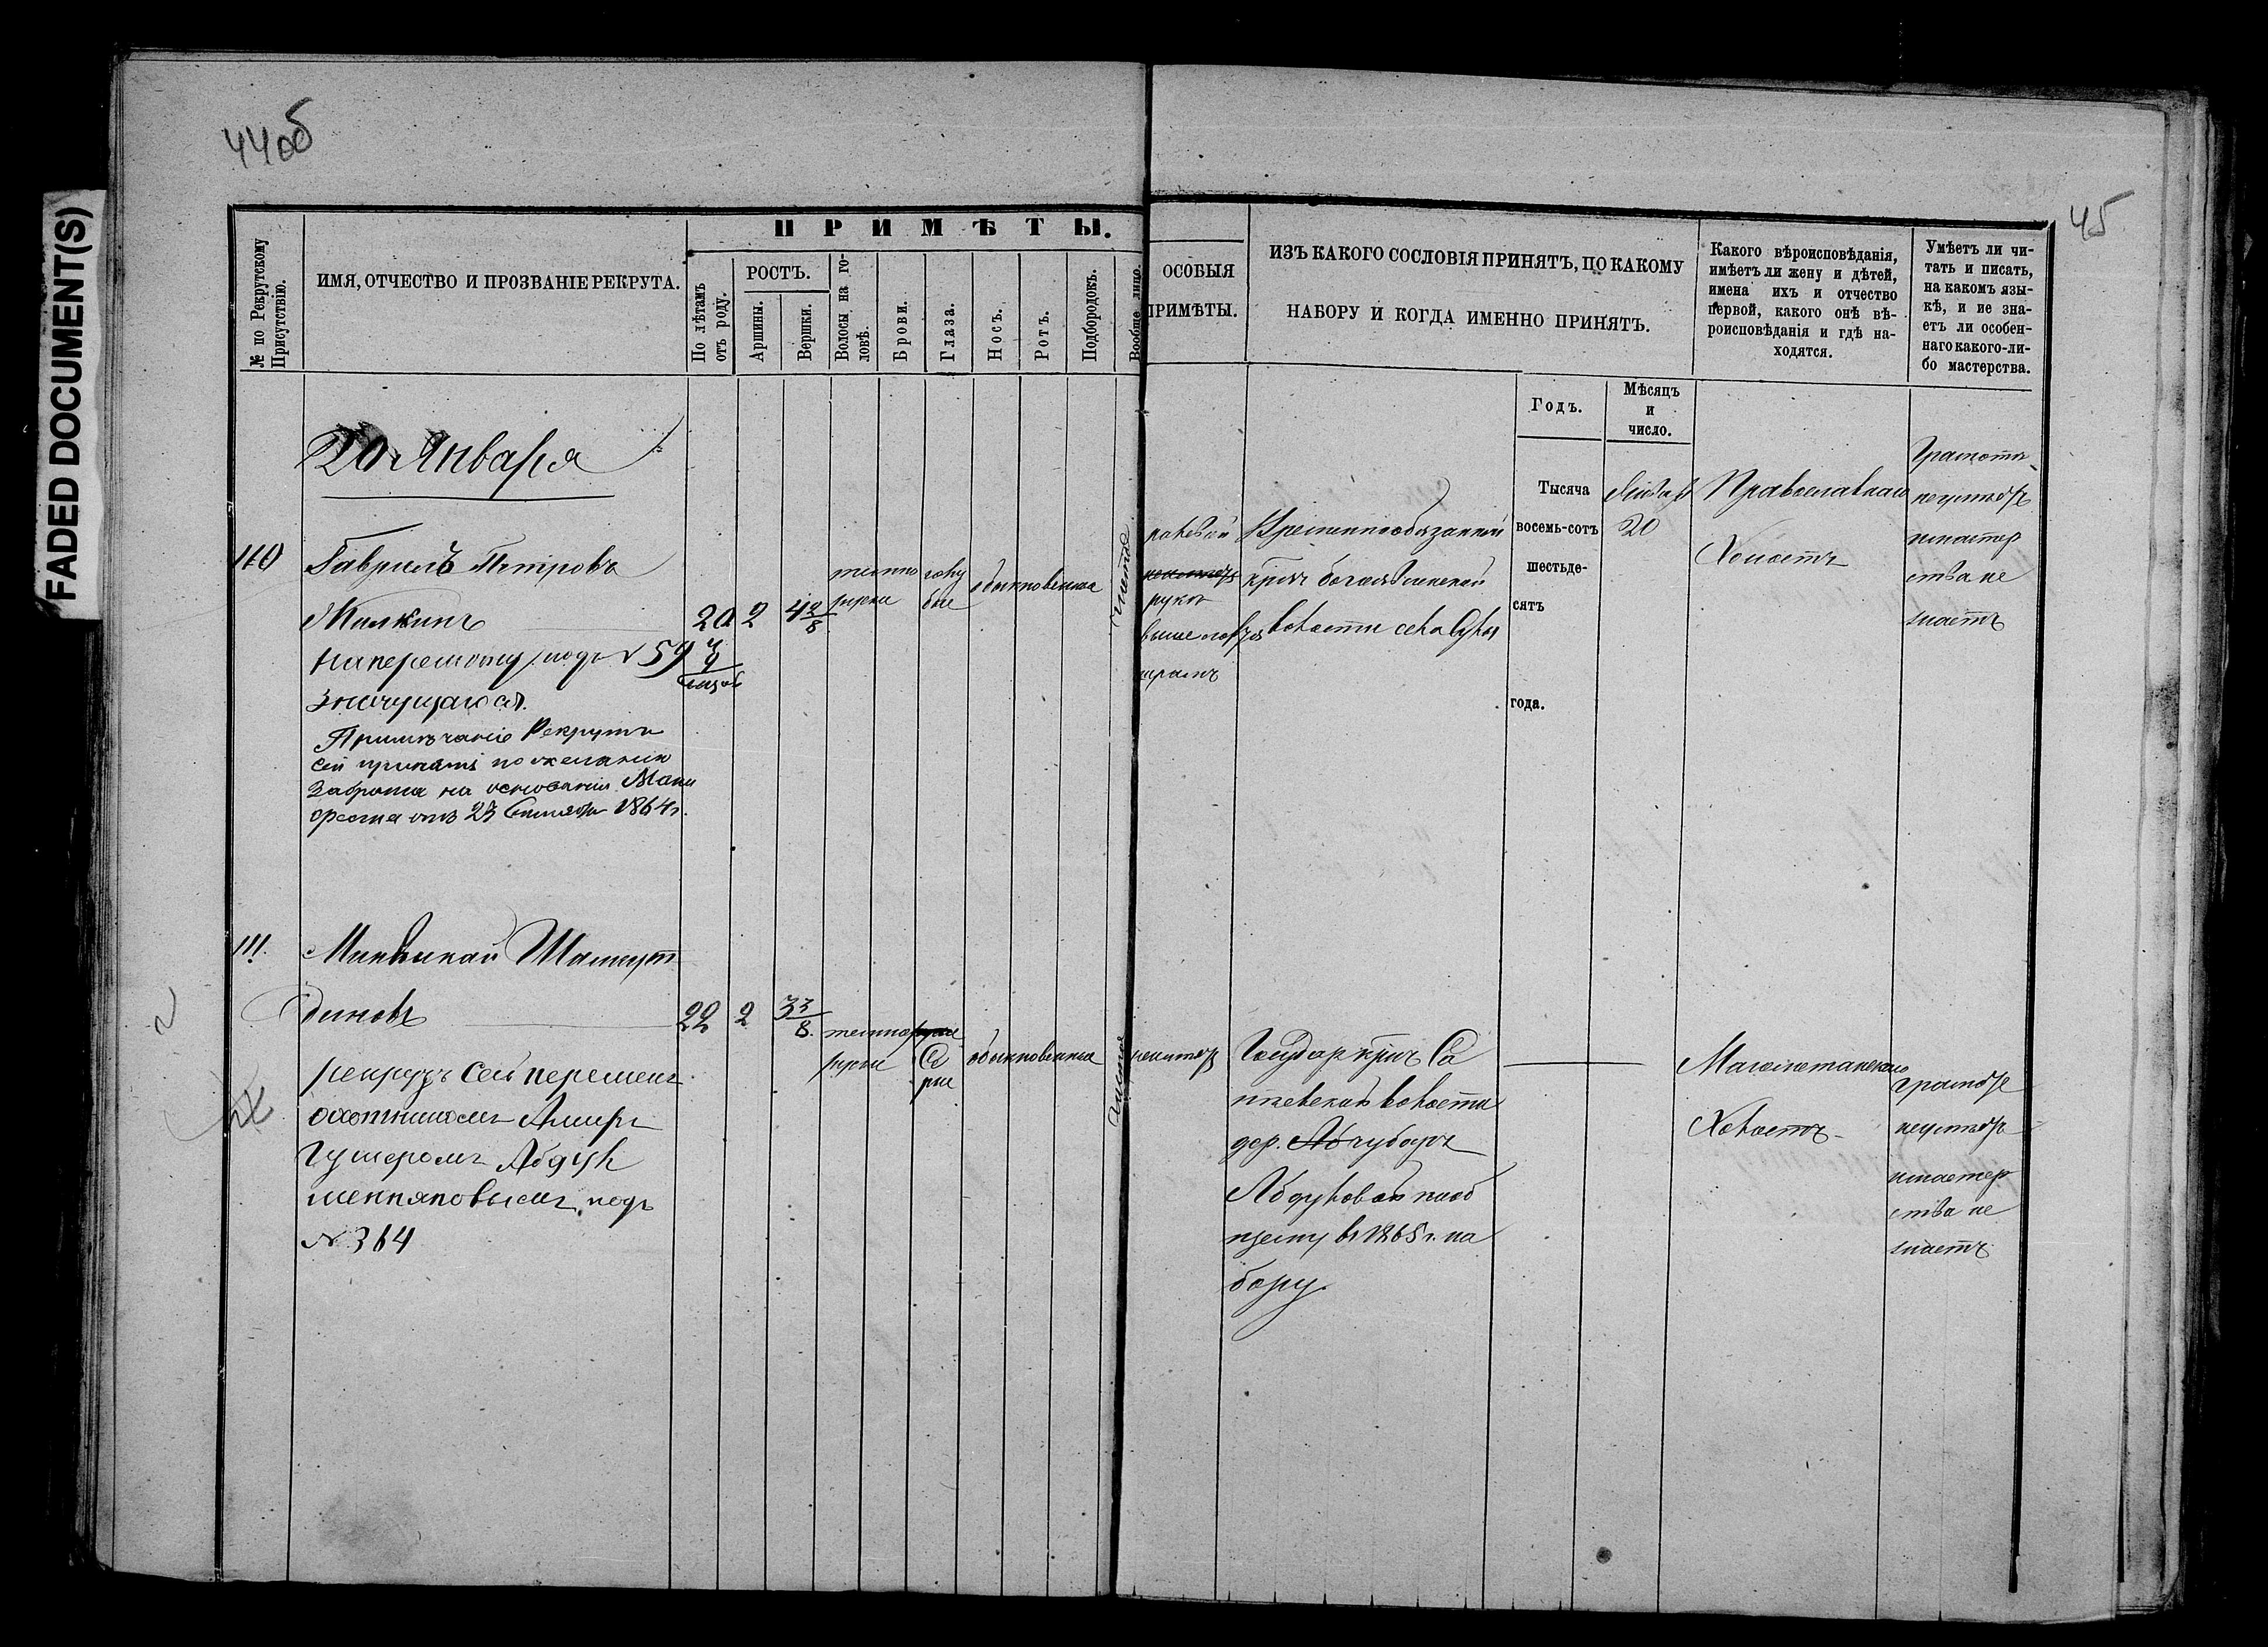 FADED DOCUMENT(S)
44об
45
№ по Рекрутскому Присутствію.
ИМЯ, ОТЧЕСТВО И ПРОЗВАНІЕ РЕКРУТА.
ПРИМѢТЫ.
По лѣтамъ отъ роду.
РОСТЪ.
Аршины.
Вершки.
Волосы на головѣ.
Брови.
Глаза.
Носъ.
Ротъ.
Подбородокъ.
Вообще лицо.
ОСОБЫЯ
ПРИМѢТЫ.
ИЗЪ КАКОГО СОСЛОВІЯ ПРИНЯТЪ, ПО КАКОМУ
НАБОРУ И КОГДА ИМЕННО ПРИНЯТЪ.
Годъ.
Мѣсяцъ
и
число.
Какого вѣроисповѣданія,
имѣетъ ли жену и дѣтей,
имена ихъ и отчество
первой, какого онѣ вѣ-
роисповѣданія и гдѣ на-
ходятся.
Умѣетъ ли чи-
тать и писать,
на какомъ язы-
кѣ, и не зна-
етъ ли особен-
наго какого-ли-
бо мастерства.
20 Января
110
Гаврилъ Петровъ
Милкинъ
20 2 4 2/8
на перемѣну подъ № 59
значущагося.
Примѣчаніе Рекрутъ
сей принятъ по желанію
на основаніи Мани
феста отъ 23 Сентября 1864 г.
темно
русые
голу
бые
обыкновенные
чистое
рукѣ
шрамъ
Временнообязанный
крес. богоявленской
волости села
Тысяча
восемь-сотъ
шестьде-
сятъ
года.
Январь
20
Православнаго
Холостъ
Грамотѣ
неумѣетъ
мастер
ства не
знаетъ
111.
Шамсут
диновъ
22 2 3 3/8
рекрутъ сей перемененъ
охотникомъ Амиръ
подъ
№ 364
темно
русые
Сѣ
рые
обыкновенные
чистое
неимѣетъ
Государ крес. Са
волости
дер.
въ 1865 г. на
бору.
Магометанскаго
Холостъ
грамотѣ
неумѣетъ
мастер
ства не
знаетъ